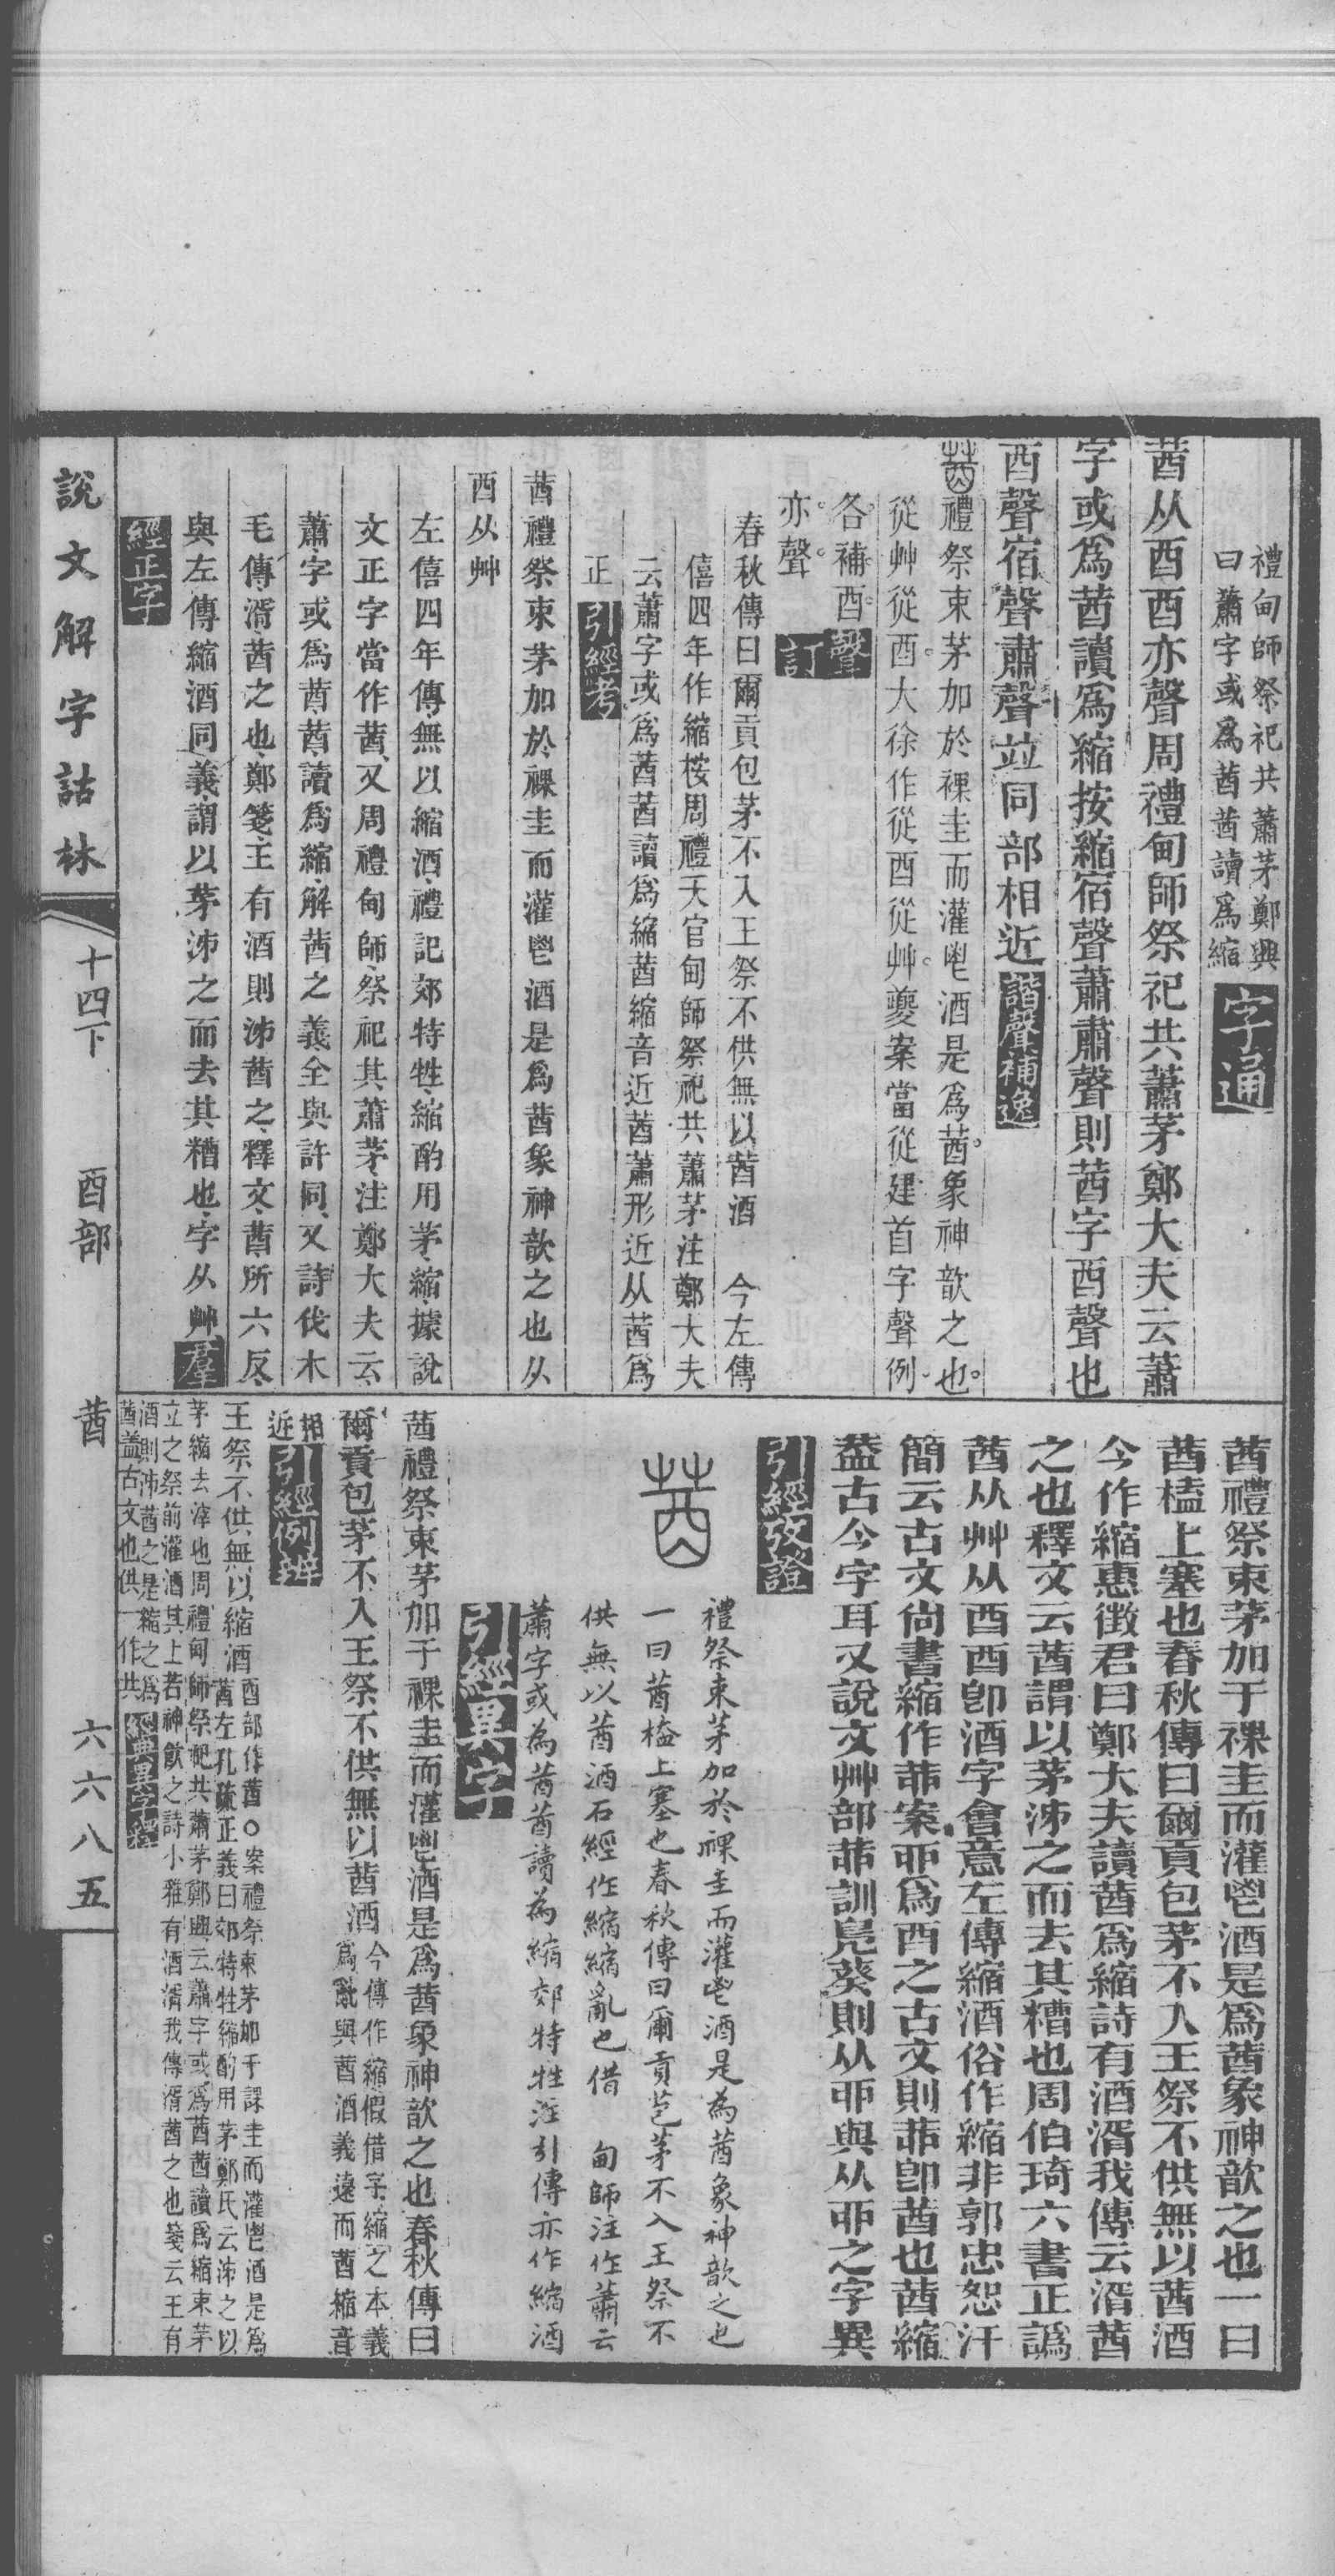 禮甸師祭祀共蕭茅鄭興
曰蕭字或爲莤莤讀爲縮
字通
莤从酉酉亦聲周禮甸師祭祀共蕭茅鄭大夫云蕭
字或爲莤讀爲縮按縮宿聲蕭肅聲則莤字酉聲也
酉聲宿聲肅聲竝同部相近諧聲補逸
禮祭束茅加於祼圭而灌鬯酒是爲莤象神歆之也
從艸從酉大徐作從酉從艸夔案當從建首字聲例
各補酉聲
亦聲 訂
春秋傳曰爾貢包茅不入王祭不供無以莤酒 今左傳
僖四年作縮桉周禮天官甸師祭祀共蕭茅注鄭大夫
云蕭字或爲莤莤讀爲縮莤縮音近莤蕭形近从莤爲
正 引經考
莤禮祭束茅加於祼圭而灌鬯酒是爲莤象神歆之也从
酉从艸
左僖四年傳無以縮酒禮記郊特牲縮酌用茅縮據說
文正字當作莤又周禮甸師祭祀其蕭茅注鄭大夫云
蕭字或爲莤莤讀爲縮解莤之義全與許同又詩伐木
毛傳湑莤之也鄭箋王有酒則泲莤之釋文莤所六反
與左傳縮酒同義謂以茅泲之而去其糟也字从艸羣
經正字
莤禮祭束茅加于祼圭而灌鬯酒是爲莤象神歆之也一曰
莤榼上塞也春秋傳曰爾貢包茅不入王祭不供無以莤酒
今作縮惠徵君曰鄭大夫讀莤爲縮詩有酒湑我傳云湑莤
之也釋文云莤謂以茅泲之而去其糟也周伯琦六書正譌
莤从艸从酉酉卽酒字會意左傳縮酒俗作縮非郭忠恕汗
簡云古文尚書縮作茆案丣爲酉之古文則茆卽莤也莤縮
葢古今字耳又說文艸部茆訓鳧葵則从丣與从丣之字異
引經攷證
禮祭束茅加於祼圭而灌鬯酒是為莤象神歆之也
一曰莤榼上塞也春秋傳曰爾貢苞茅不入王祭不
供無以莤酒石經作縮縮亂也借 甸師注作蕭云
蕭字或為莤莤讀為縮郊特牲注引傳亦作縮酒
引經異字
莤禮祭束茅加于祼圭而灌鬯酒是爲莤象神歆之也春秋傳曰
爾貢包茅不入王祭不供無以莤酒 今傳作縮假借字縮之本義
爲亂與莤酒義遠而莤縮音
相近 引經例辨
王祭不供無以縮酒 酉部作莤○案禮祭束茅加于祼圭而灌鬯酒是爲
莤左孔疏正義曰郊特牲縮酌用茅鄭氏云泲之以
茅縮去滓也周禮甸師祭祀共蕭茅鄭興云蕭字或爲莤莤讀爲縮束茅
立之祭前灌酒其上若神飲之詩小雅有酒湑我傳湑莤之也箋云王有
酒則泲莤之是縮之爲
莤葢古文也供一作共 經典異字釋
說文解字詁林
十四下
酉部
莤
六六八五